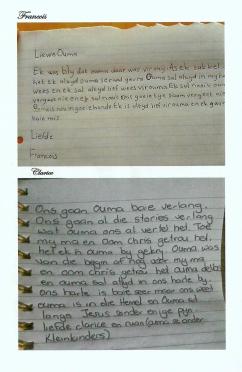 Francois
Liewe Ouma
Ek was bly dat ouma daar was vir my. As ek sak bel
het ek altyd ouma se raad gevra. Ouma sal altyd in my
wees en ek sal altyd lief wees vir ouma. Ek sal nooit ouma
vergeet nie en ek sal nooit ons goeie tye saam vergeet nie
Ek is altyd lief vir ouma en ek gaan
baie mis.
Liefde
Francois
Clarice
Ons gaan Ouma baie verlang.
Ons gaan al die stories verlang
wat ouma ons al vertel het. Toe
my ma en oom Chris getrou het.
het ek 'n ouma by gekry. Ouma was
van die begin af nog voor my ma
en oom Chris getrou het ouma
en ouma sal altyd in ons harte bly.
ons harte is baie seer maar ons weet
ouma is in die Hemel en Ouma sal
langs Jesus sonder enige pyn
liefde clarice en ruan (ouma se ander
kleinkinders)